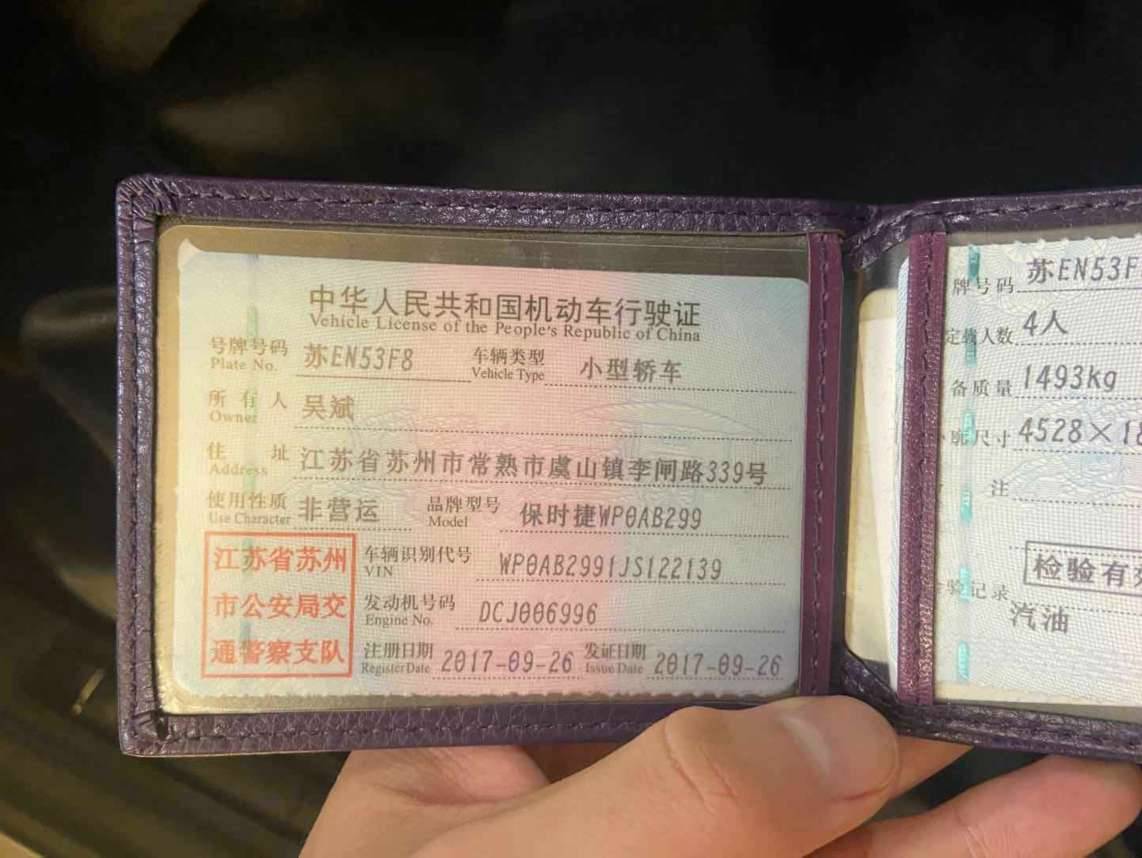 中华人民共和国机动车行驶证
Vehicle License of the People's Republic of China
号牌号码 苏EN53F8 车辆类型 小型轿车
Plate No. Vehicle Type
所有人 吴斌
Owner
住址 江苏省苏州市常熟市虞山镇李闸路339号
Address
使用性质 非营运 品牌型号 保时捷WP0AB299
Use Character Model
江苏省苏州
市公安局交
通警察支队
车辆识别代号 WP0AB2991JS122139
VIN
发动机号码 DCJ006996
Engine No.
注册日期 2017-09-26 发证日期 2017-09-26
Register Date Issue Date
牌号码 苏EN53F
定载人数 4人
备质量 1493kg
廓尺寸 4528×18
注
检验有
验记录
汽油